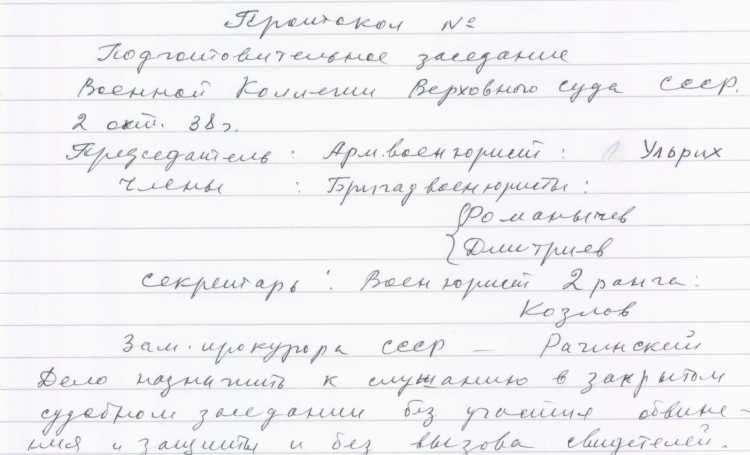 Протокол №
Подготовительное заседание
Военной Коллегии Верховного суда СССР.
2 окт. 38г.
Председатель: Арм.военюрист: Ульрих
Члены : Бригадвоенюристы:
{Романычев
{Дмитриев
Секретарь: Военюрист 2 ранга:
Козлов
Зам. прокурора СССР – Рагинский
Дело назначить к слушанию в закрытом
судебном заседании без участия обвине-
ния и защиты и без вызова свидетелей.